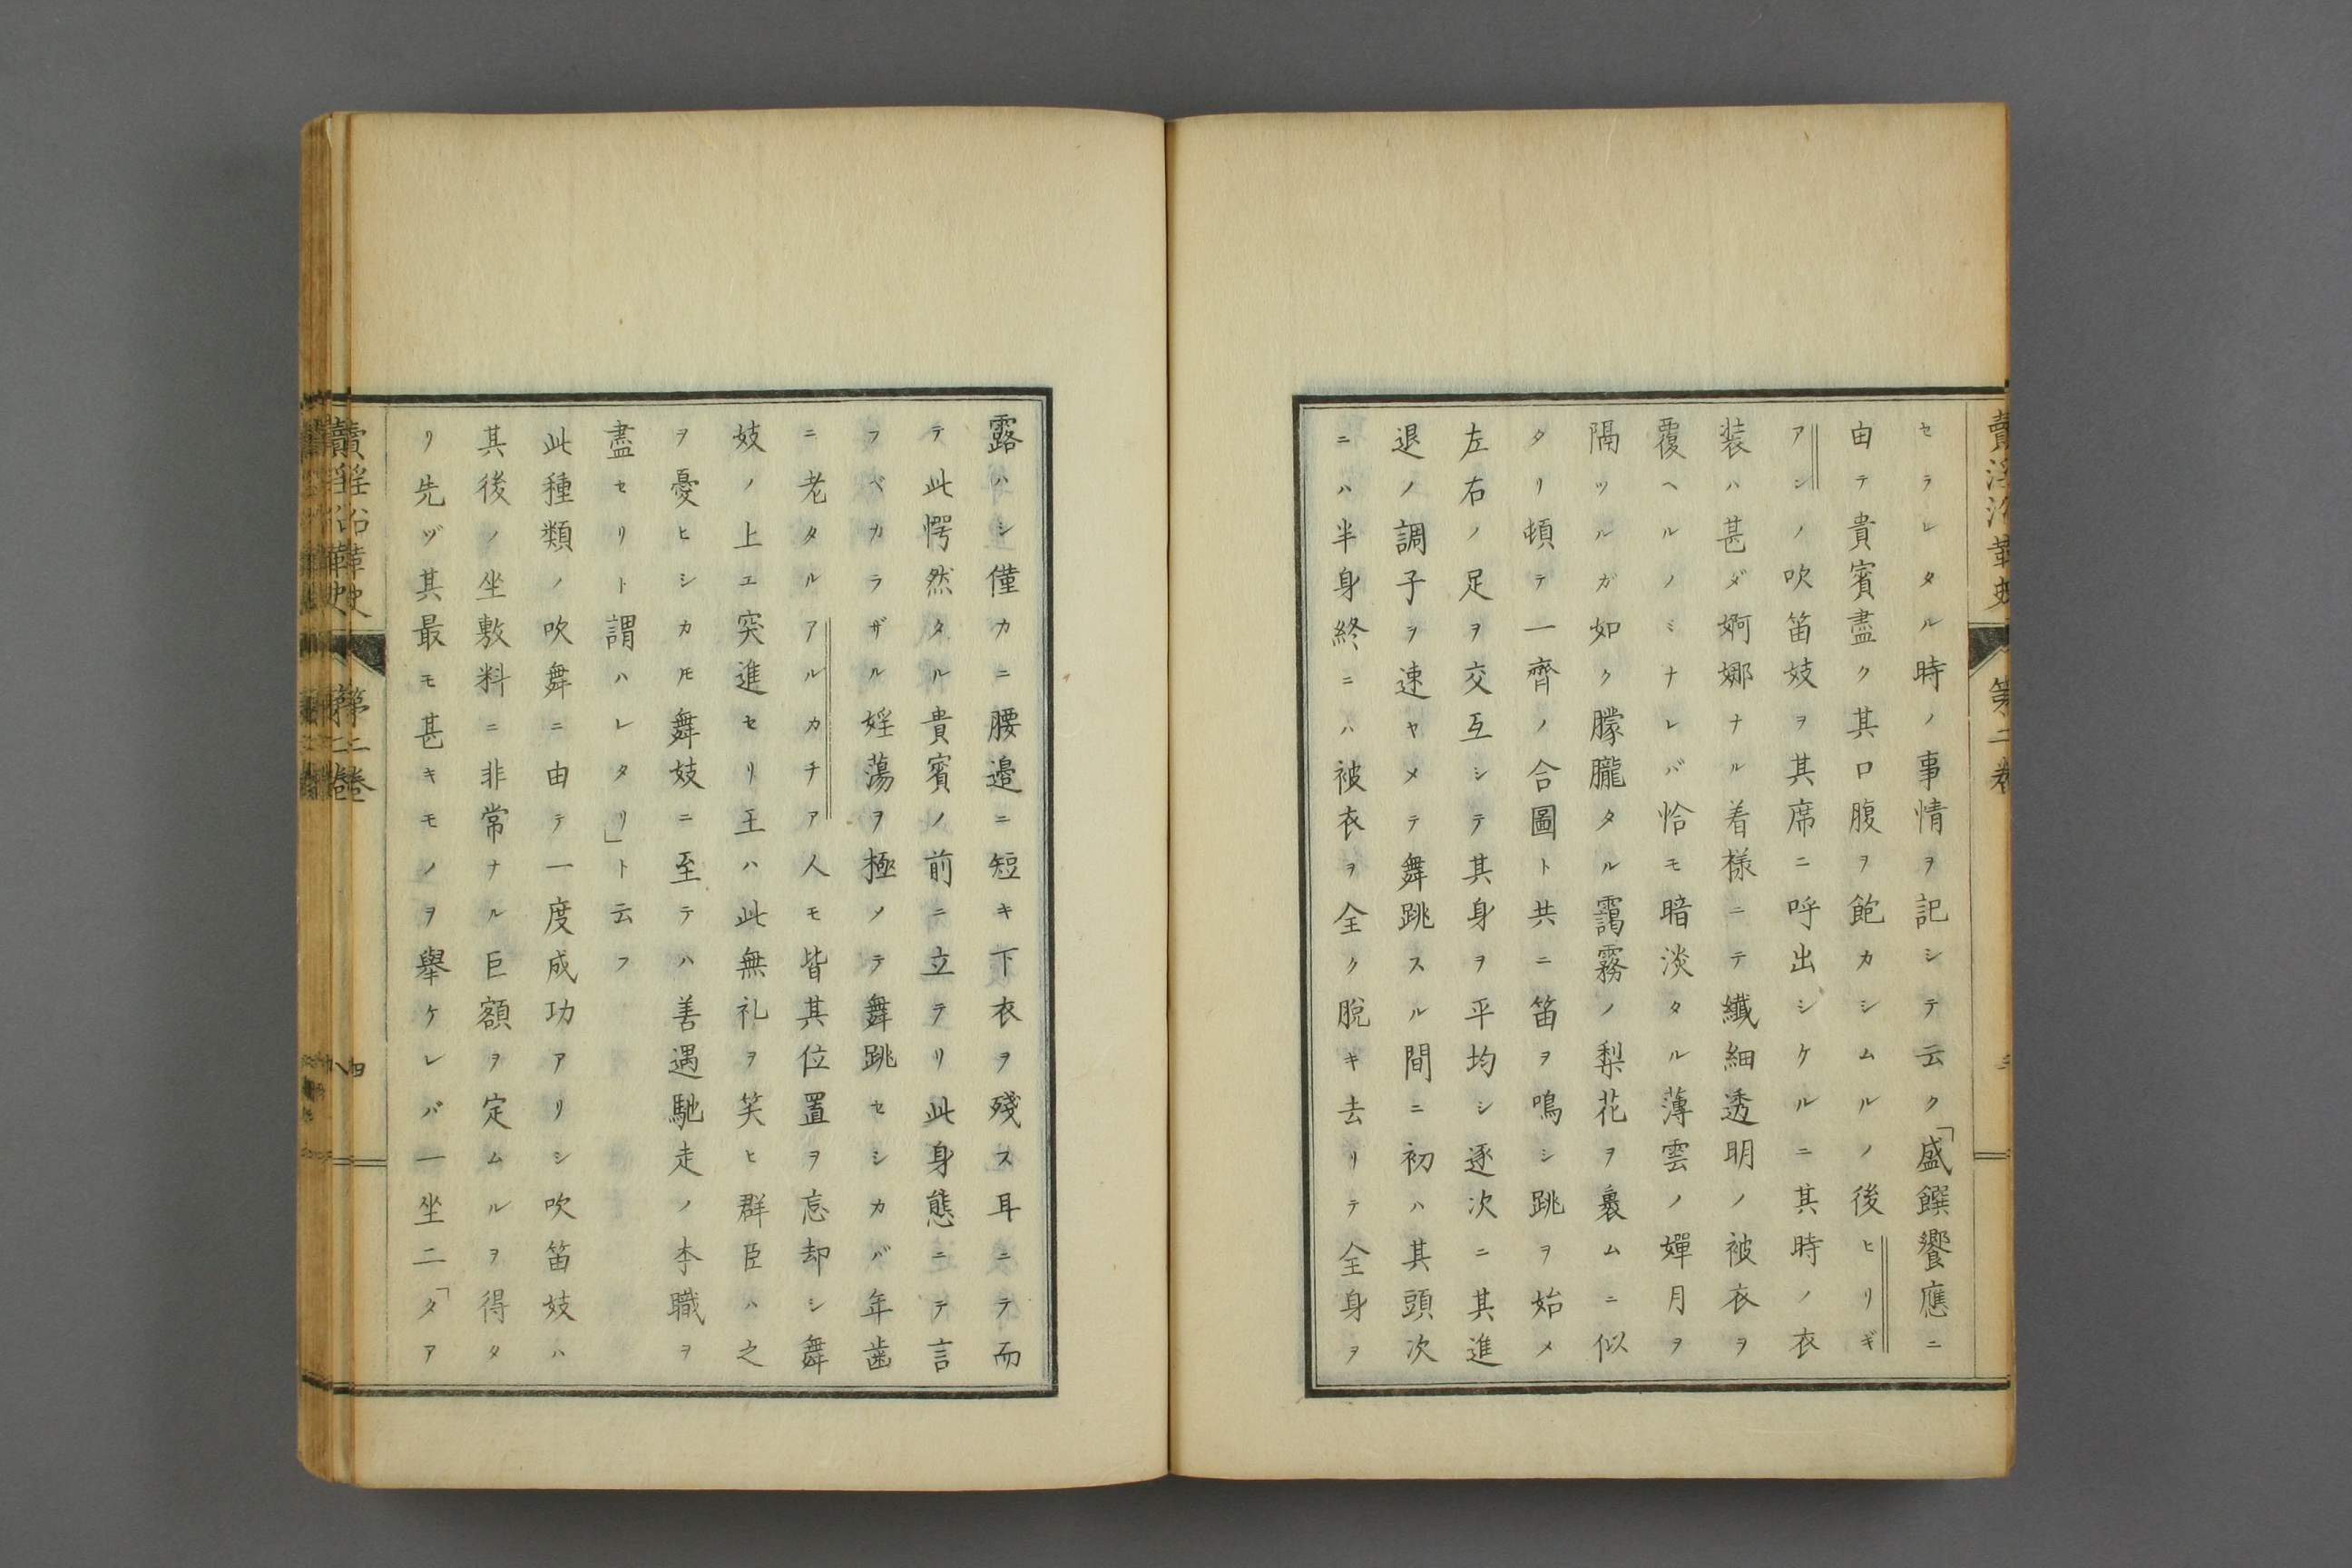 セラレタル時ノ事情ヲ記シテ云ク「盛饌饗應ニ
由テ貴賓盡ク其口腹ヲ飽カシムルノ後ヒリギ
アンノ吹笛妓ヲ其席ニ呼出シケルニ其時ノ衣
装ハ甚ダ婀娜ナル着樣ニテ纎細透明ノ被衣ヲ
覆ヘルノミナレバ恰モ暗淡タル薄雲ノ嬋月ヲ
隔ツルガ如ク朦朧タル靄霧ノ梨花ヲ裹ムニ似
タリ頓テ一齊ノ合圖ト共ニ笛ヲ鳴シ跳ヲ始メ
左右ノ足ヲ交互シテ其身ヲ平均シ逐次ニ其進
退ノ調子ヲ速ヤメテ舞跳スル間ニ初ハ其頭次
ニハ半身終ニハ被衣ヲ全ク脫キ去リテ全身ヲ
露ハシ僅カニ腰邉ニ短キ下衣ヲ殘ス耳ニテ而
テ此愕然タル貴賓ノ前ニ立テリ此身態ニテ言
フベカラザル婬蕩ヲ極メテ舞跳セシカバ年歯
ニ老タルアルカチア人モ皆其位置ヲ忘却シ舞
妓ノ上エ突進セリ王ハ此無礼ヲ笑ヒ群臣ハ之
ヲ憂ヒシカ𪜈舞妓ニ至テハ善遇馳走ノ本職ヲ
盡セリト謂ハレタリ」ト云フ
此種類ノ吹舞ニ由テ一度成功アリシ吹笛妓ハ
其後ノ坐敷料ニ非常ナル巨額ヲ定ムルヲ得タ
リ先ヅ其最モ甚キモノヲ舉ケレバ一坐二「タア
賣淫沿革史
第二卷
四